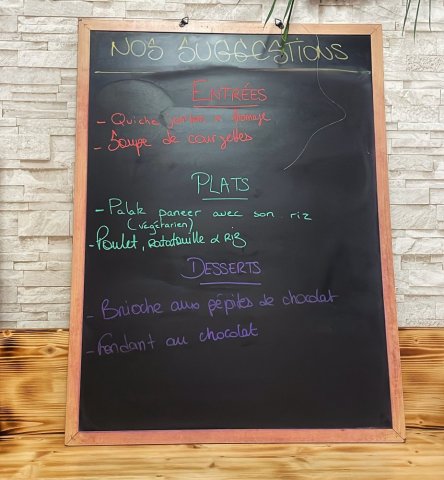 NOS SUGGESTIONS
ENTRÉES
- Quiche jambon et fromage
- Soupe de courgettes
PLATS
- Palak paneer avec son riz
(végétarien)
- Poulet, Ratatouille & RIZ
DESSERTS
- Brioche aux pépites de chocolat
- Fondant au chocolat